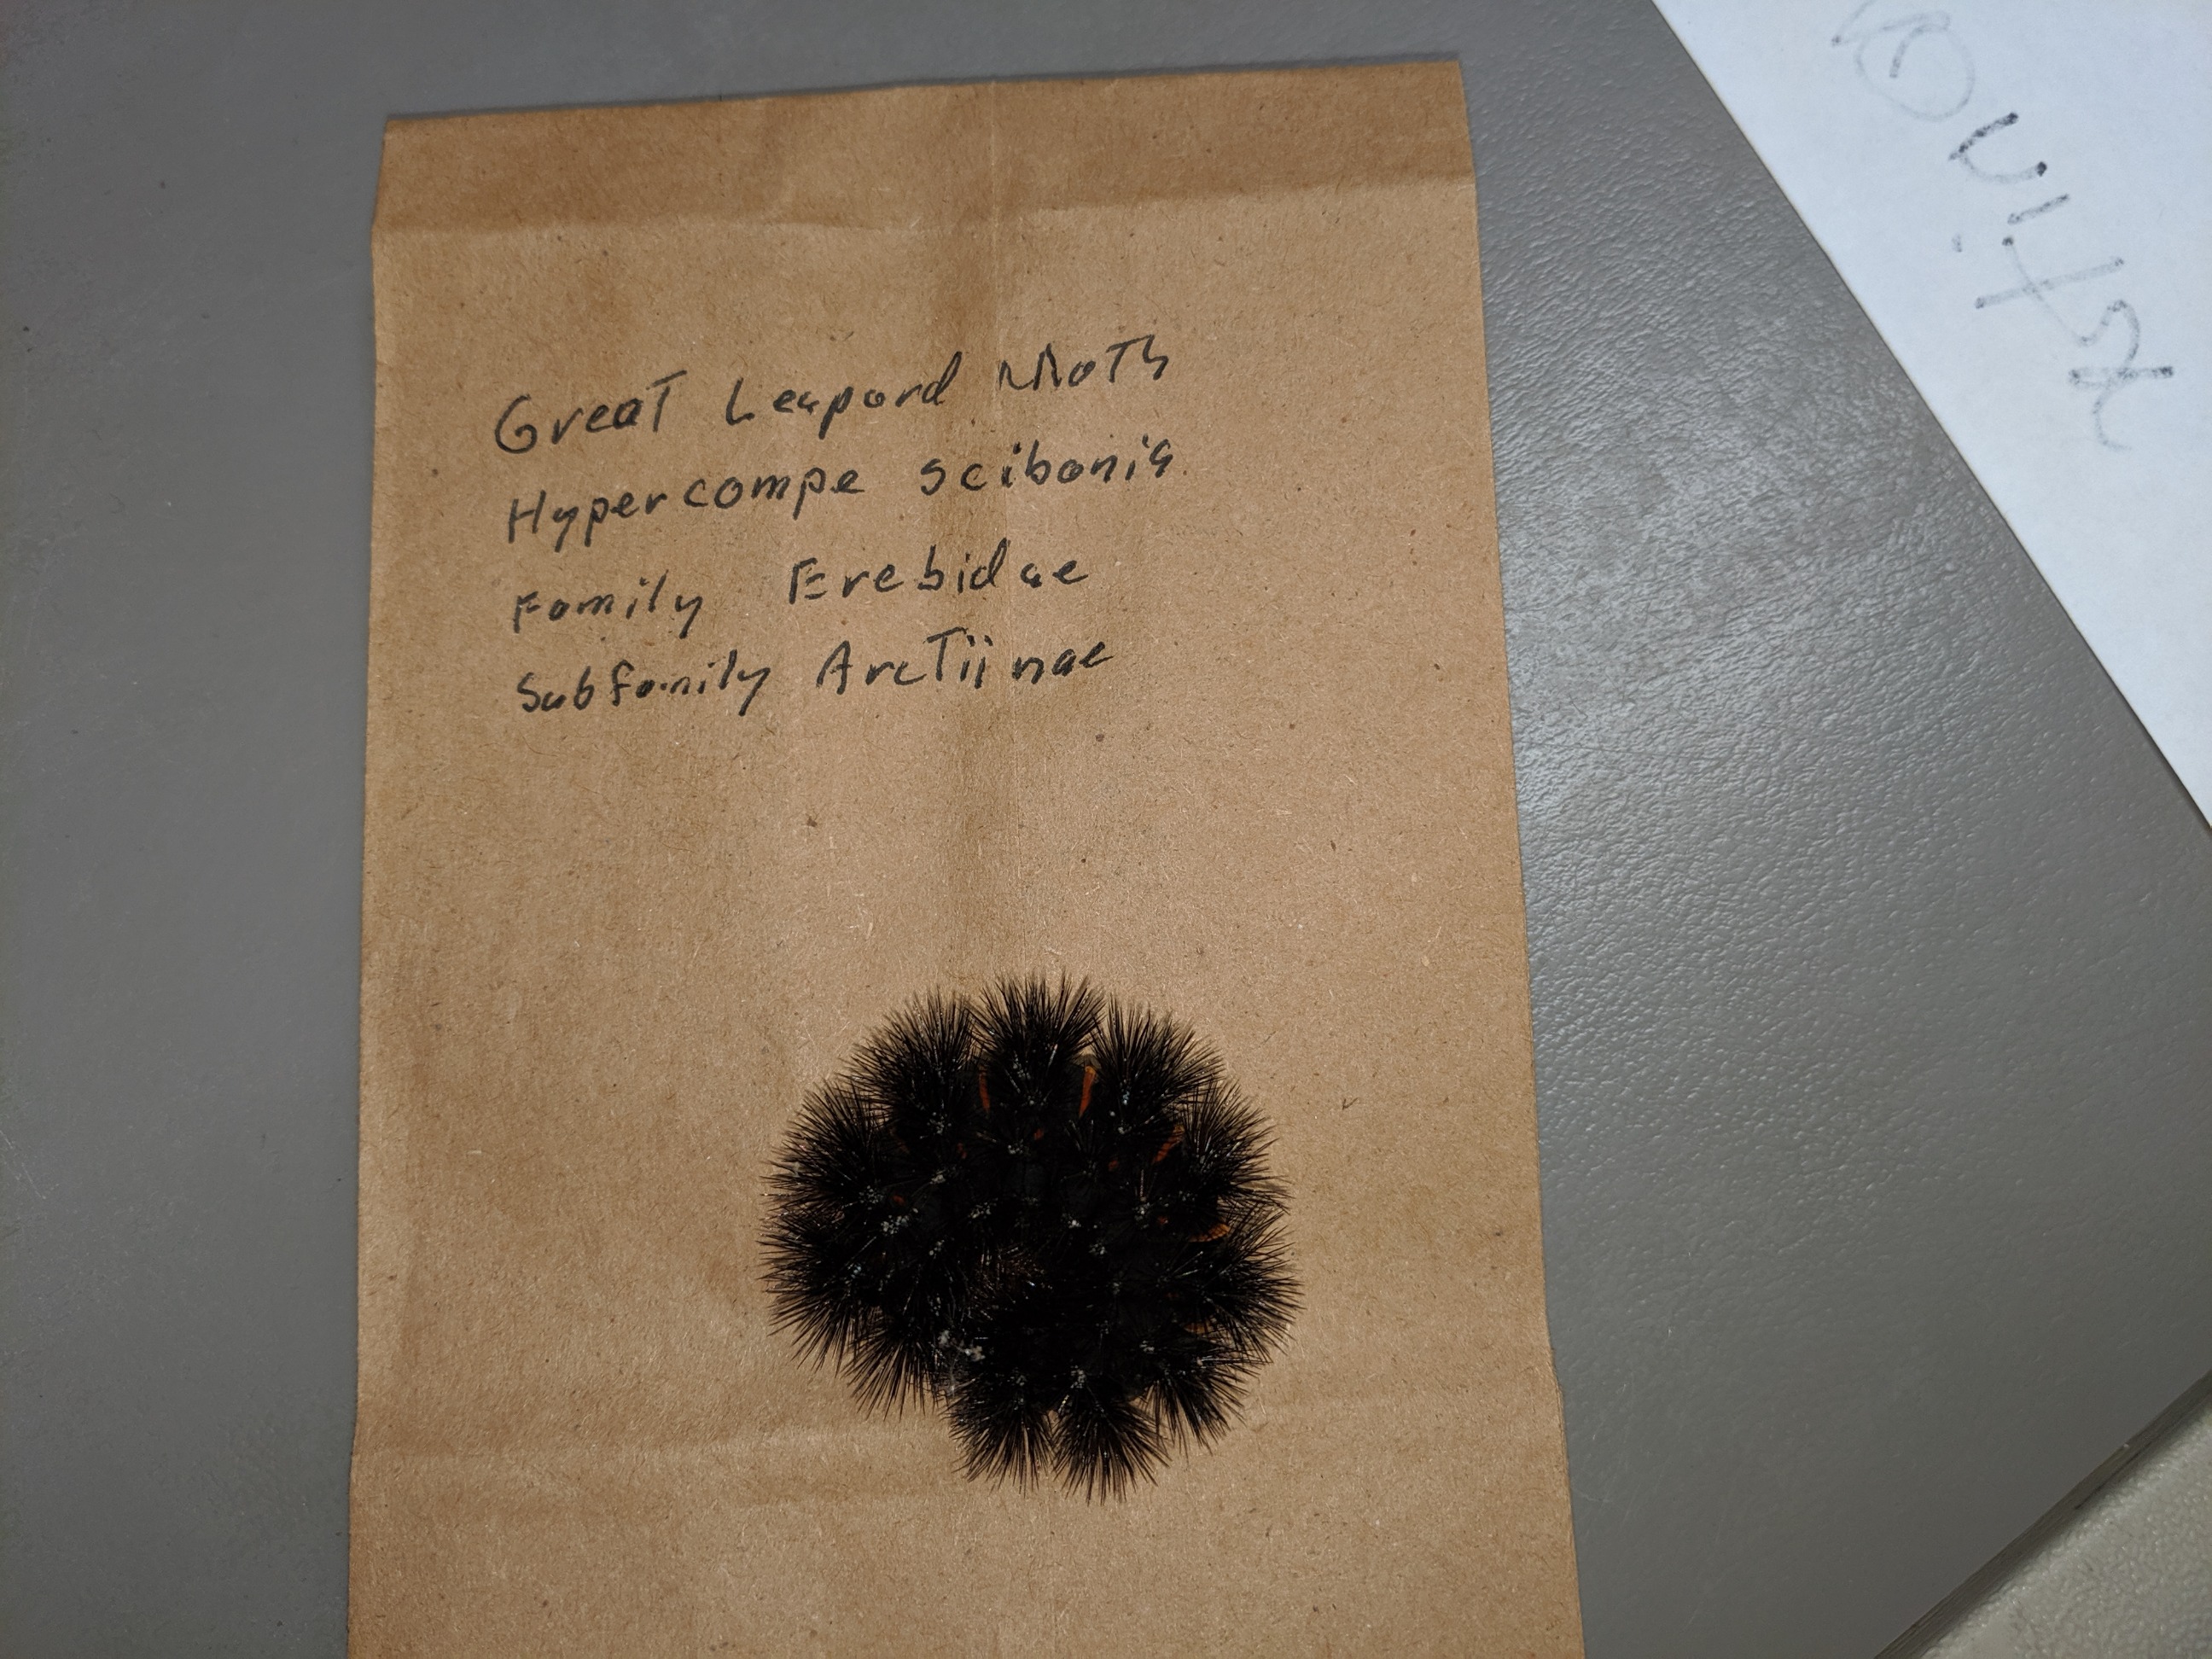 Great Leapord Moth
Hypercompe scibonia
Family Erebidae
Subfamily Arctiinae